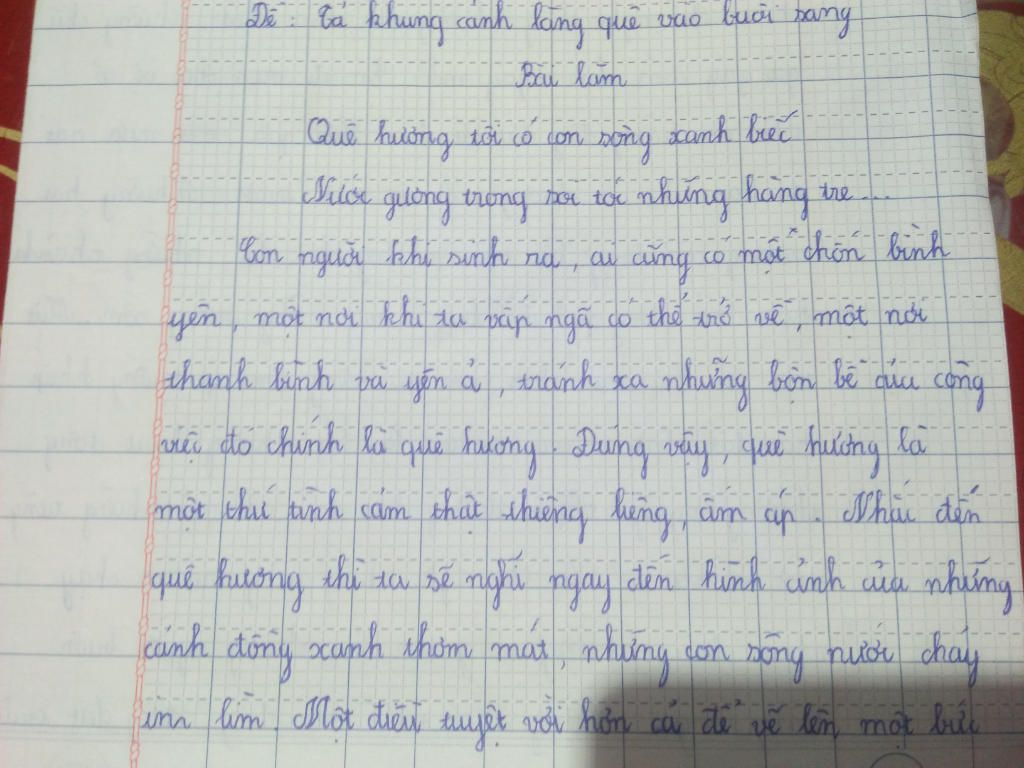 Đề: Tả khung cảnh làng quê vào buổi sáng
Bài làm
Quê hương tôi có con sông xanh biếc
Nước gương trong soi tóc những hàng tre...
Con người khi sinh ra, ai cũng có một chốn bình
yên, một nơi khi ta vấp ngã có thể trở về, một nơi
thanh bình và yên ả, tránh xa những bộn bề của công
việc đó chính là quê hương. Đúng vậy, quê hương là
một thứ tình cảm thật thiêng liêng, ấm áp. Nhắc đến
quê hương thì ta sẽ nghĩ ngay đến hình ảnh của những
cánh đồng xanh thơm mát, những con sông nước chảy
im lìm. Một điều tuyệt vời hơn cả để vẽ lên một bức